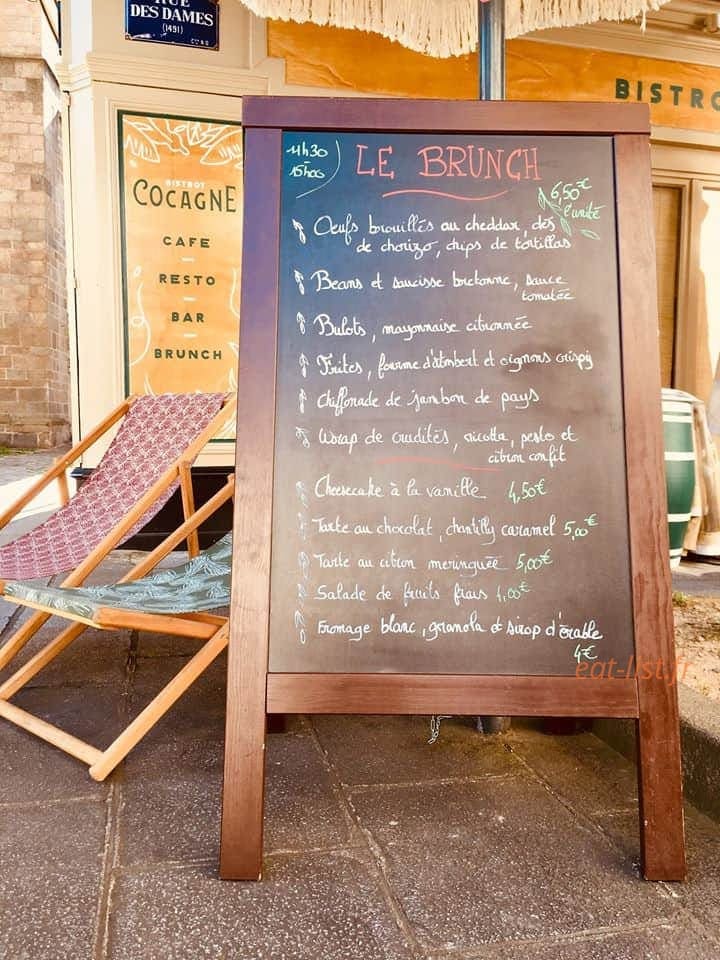 RUE
DES DAMES
(1491)
BISTRO
BISTROT
COCAGNE
CAFE
RESTO
BAR
BRUNCH
11h30
15h00
LE BRUNCH
6,50€
l'unité
Oeufs brouillés au cheddar, dés
de chorizo, chips de tortillas
Beans et saucisse bretonne, sauce
tomatée
Bulots, mayonnaise citronnée
Frites, fourme d'Ambert et oignons crispy
Chiffonade de jambon de pays
Wrap de crudités, ricotta, pesto et
citron confit
Cheesecake à la vanille 4,50€
Tarte au chocolat, chantilly caramel 5,00€
Tarte au citron meringuée 5,00€
Salade de fruits frais 4,00€
Fromage blanc, granola et sirop d'érable
4€
eat-list.fr